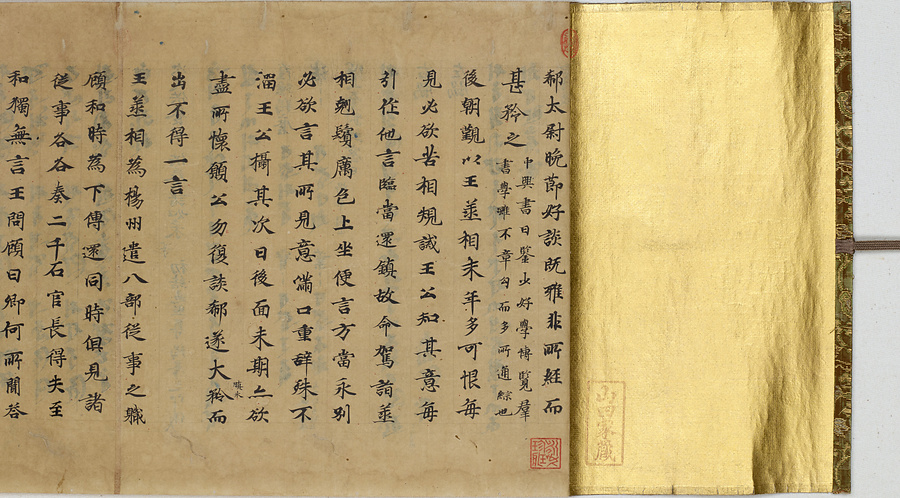 郗太尉晚節好談既雅非所經而
甚矜之
中興書曰鑒少好學博覽羣
書學雖不章句而多所通綜也
後朝覲以王丞相末年多可恨每
見必欲苦相規誡王公知其意每
引作他言臨當還鎮故命駕詣丞
相翹鬚厲色上坐便言方當永別
必欲言其所見意滿口重辭殊不
溜王公攝其次曰後面未期亦欲
盡所懷願公勿復談郗遂大矜而
出不得一言
王丞相為楊州遣八部從事之職
顧和時為下傳還同時俱見諸
從事各各奏二千石官長得失至
和獨無言王問顧曰卿何所聞答
山田家藏